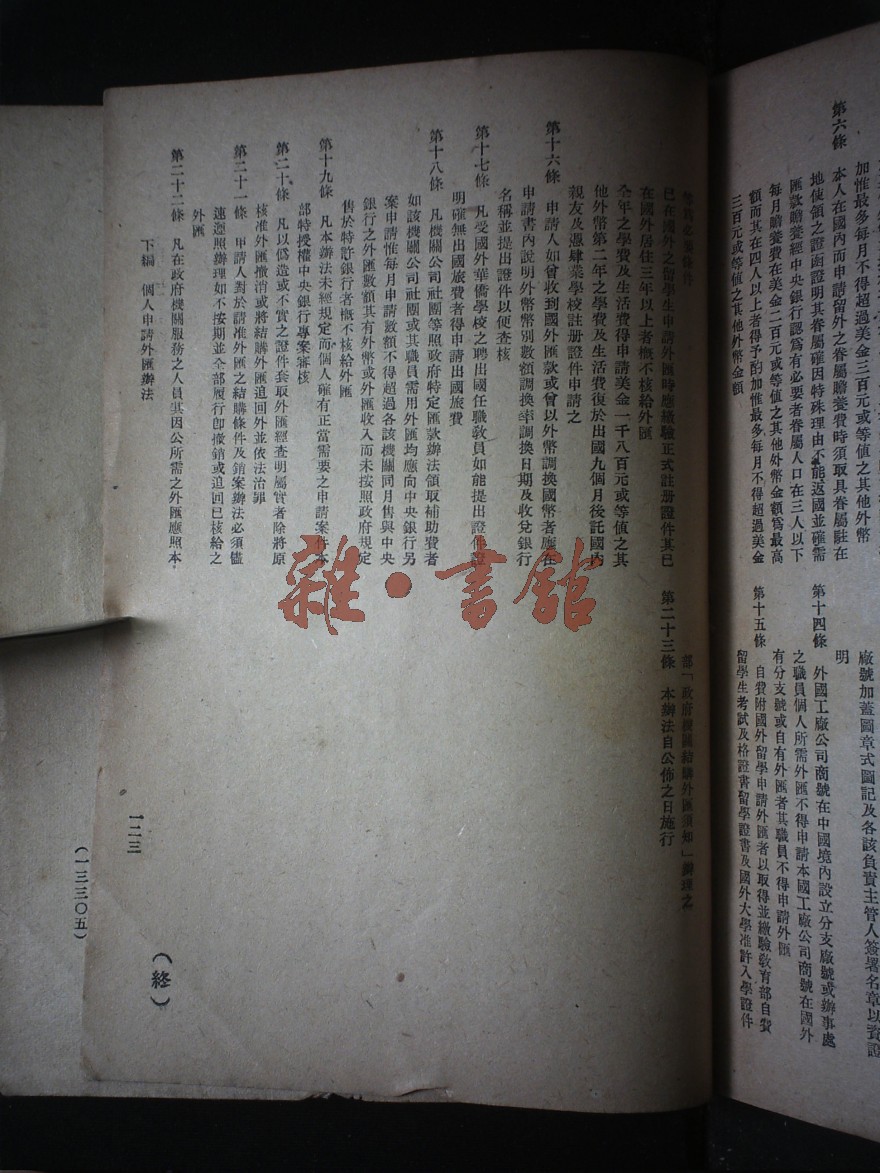 加惟最多每月不得超過美金三百元或等值之其他外幣
第六條 本人在國內而申請留外之眷屬贍養費時須取具眷屬駐在
地使領之證函證明其眷屬確因特殊理由不能返國並確需
匯款贍養經中央銀行認爲有必要者眷屬人口在三人以下
每月贍養費在美金二百元或等值之其他外幣金額爲最高
額而其在四人以上者得予酌加惟最多每月不得超過美金
三百元或等值之其他外幣金額
廠號加蓋圖章式圖記及各該負責主管人簽署名章以資證
明
第十四條 外國工廠公司商號在中國境內設立分支廠號或辦事處
之職員個人所需外匯不得申請本國工廠公司商號在國外
有分支號或自有外匯者其職員不得申請外匯
第十五條 自費附國外留學申請外匯者以取得並繳驗敎育部自費
留學生考試及格證書留學證書及國外大學准許入學證件
等爲必要條件
已在國外之留學生申請外匯時應繳驗正式註册證件其已
在國外居住三年以上者槪不核給外匯
全年之學費及生活費得申請美金一千八百元或等值之其
他外幣第二年之學費及生活費復於出國九個月後託國內
親友及憑肄業學校註册證件申請之
第十六條 申請人如曾收到國外匯款或曾以外幣調換國幣者應在
申請書內說明外幣幣別數額調換率調換日期及收兌銀行
名稱並提出證件以便查核
第十七條 凡受國外華僑學校之聘出國任職敎員如能提出證件證
明確無出國旅費者得申請出國旅費
第十八條 凡機關公司社團等照政府特定匯款辦法領取補助費者
如該機關公司社團或其職員需用外匯均應向中央銀行另
案申請惟每月申請數額不得超過各該機關同月售與中央
銀行之外匯數額其有外幣或外匯收入而未按照政府規定
售於特許銀行者槪不核給外匯
第十九條 凡本辦法未經規定而個人確有正當需要之申請案件本
部特授權中央銀行專案審核
第二十條 凡以僞造或不實之證件套取外匯經查明屬實者除將原
核准外匯撤消或將結購外匯追回外並依法治罪
第二十一條 申請人對於請准外匯之結購條件及銷案辦法必須儘
速遵照辦理如不按期並全部履行卽撤銷或追回已核給之
外匯
第二十二條 凡在政府機關服務之人員其因公所需之外匯應照本
部「政府機關結購外匯須知」辦理之
第二十三條 本辦法自公佈之日施行
下編 個人申請外匯辦法
一二三
(一三三〇五)
(終)
雜·書館